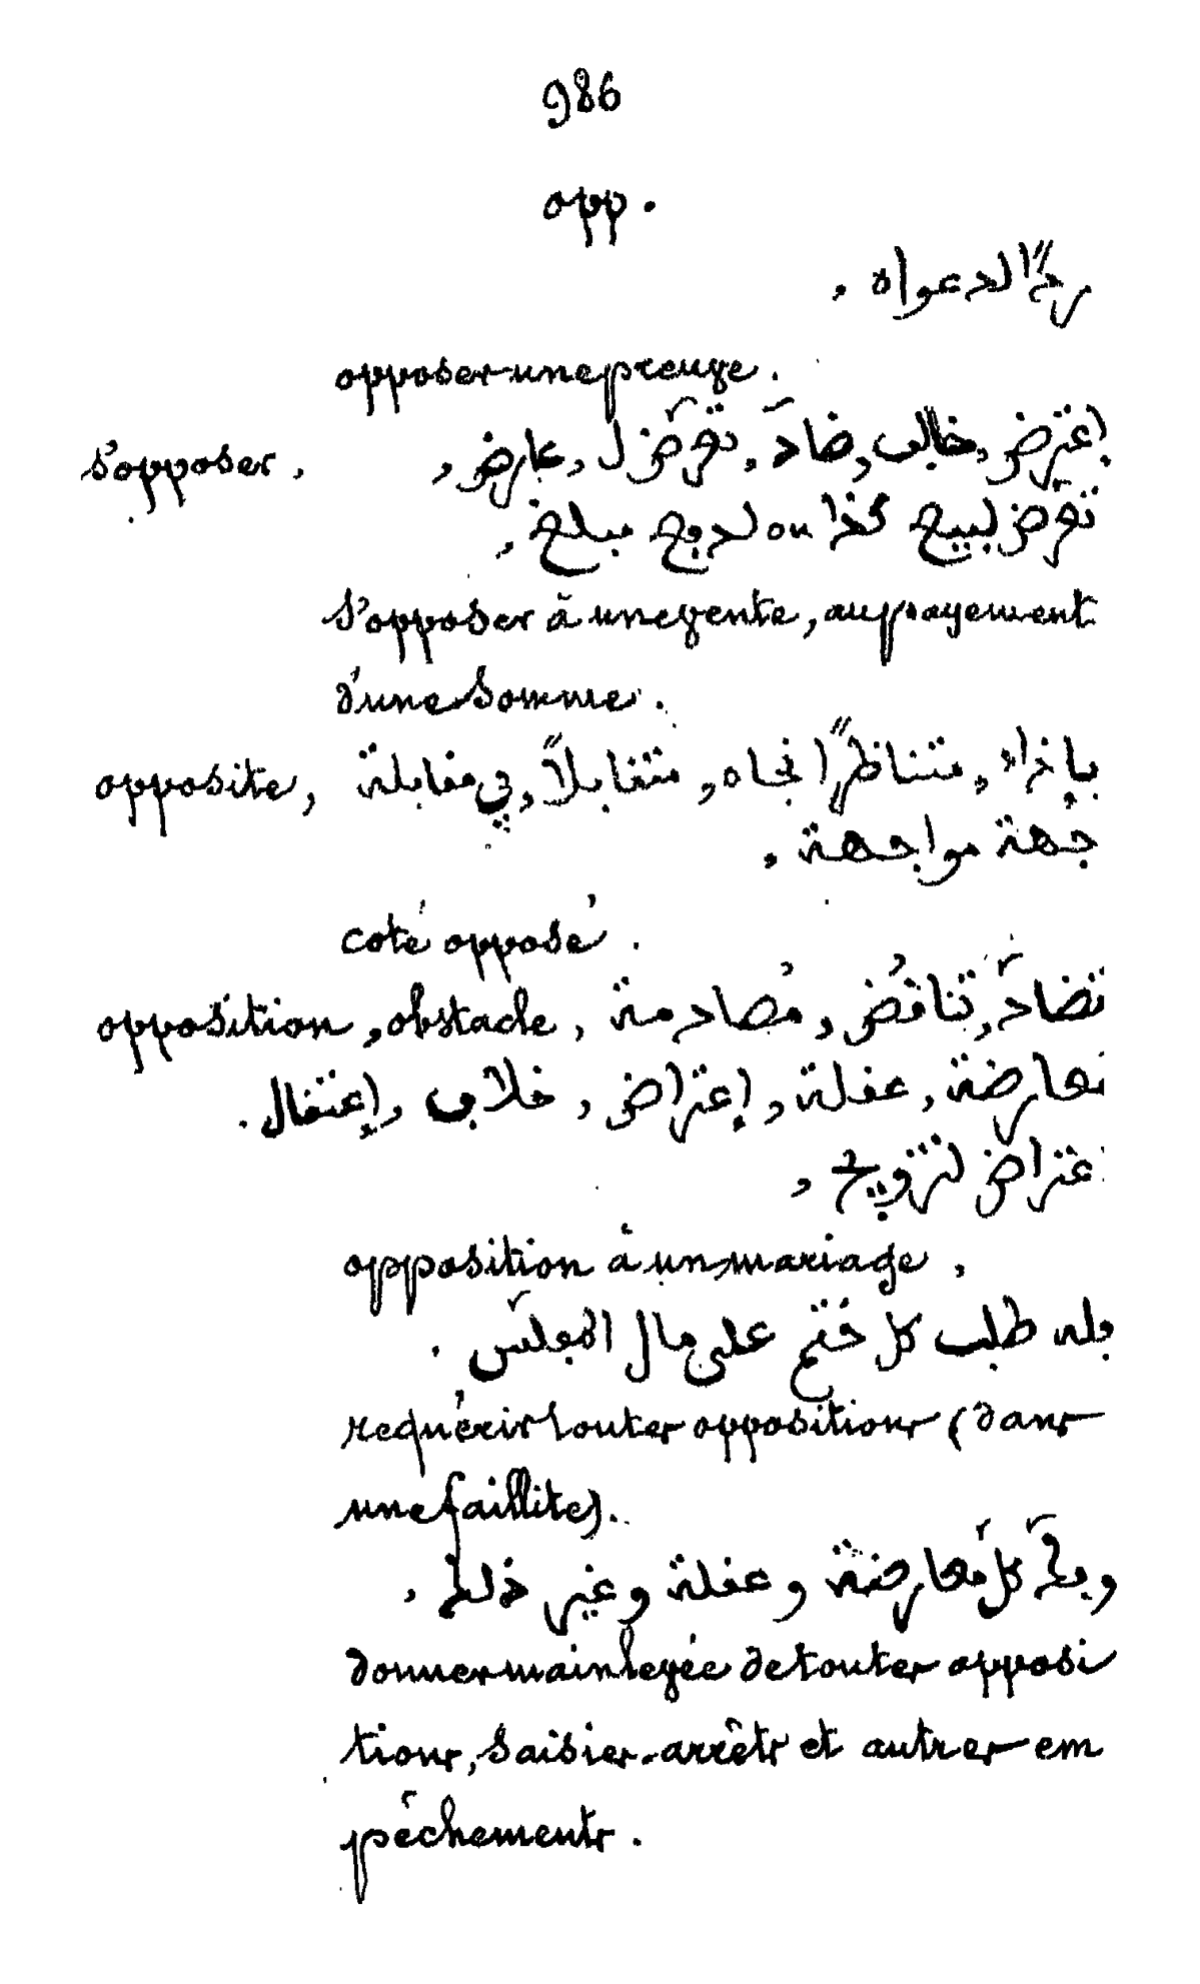 986
opp.
ردًّا لدعواه ,
opposer une preuve.
s'opposer, اِعترض, خالف, ضادّ, تعرّض ل, عارض,
تعرّض لبيع كذا ou لدفع مبلغ,
s'opposer à une vente, au payement
d'une somme.
opposite, بإزاء, متناظرًا تجاه, متقابلاً, في مقابلة
جهة مواجهة,
coté opposé.
opposition, obstacle, تضادّ, تناقُض, مُصادمة,
تعارضة, عقلة, إعتراض, خلاف, إعتقال.
اعتراض لتزويج,
opposition à un mariage,
طلب كل ختم على مال المفلّس.
requérir toutes oppositions (dans
une faillite).
كلّ معارضة وعقلة وغير ذلك,
donner mainlevée de toutes opposi
tions, saisies-arrêts et autres em
pêchements.